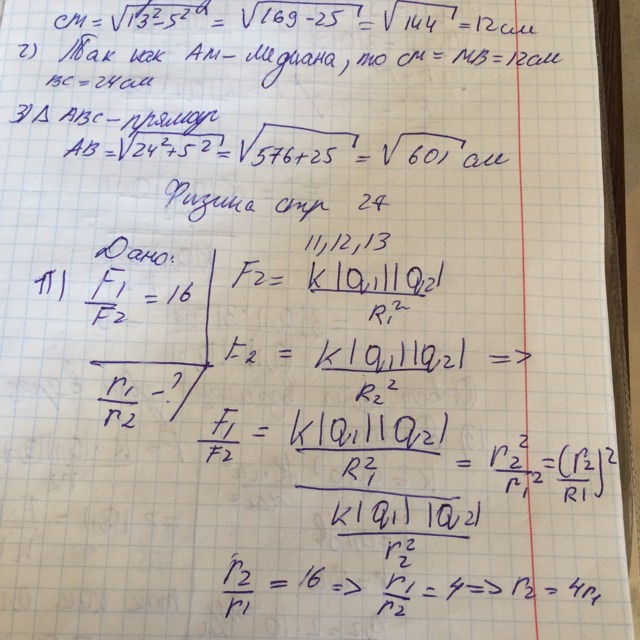 CM = √13²-5² = √169-25 = √144 = 12 см
2) Так как AM - медиана, то CM = MB = 12 см
BC = 24 см
3) Δ ABC - прямоуг
AB = √24²+5² = √576+25 = √601 см
Физика стр 27
11, 12, 13
Дано:
11) F1/F2 = 16
r1/r2 - ?
F2 = k|q1||q2|/R1²
F2 = k|q1||q2|/R2² =>
F1/F2 = k|q1||q2|/R1² / k|q1||q2|/r2² = r2²/r1² = (r2/R1)²
r2/r1 = 16 => r1/r2 = 4 => r2 = 4r1